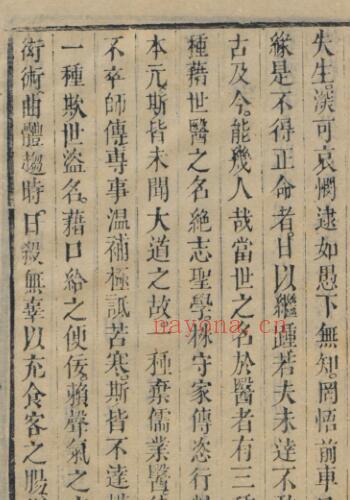 失生深可哀憫逮如愚下無知罔悟前車
緣是不得正命者日以繼踵若夫未達不
古及今能幾人哉當世之名於醫者有三
種藉世醫之名絕志聖學株守家傳恣行
本元斯皆未聞大道之故一種棄儒業醫
不幸師傳專事温補極詆苦寒斯皆不達
一種欺世盜名藉口給之便佞賴聲氣之
衒術曲體趨時日殺無辜以充食客之腹
nayona.cn